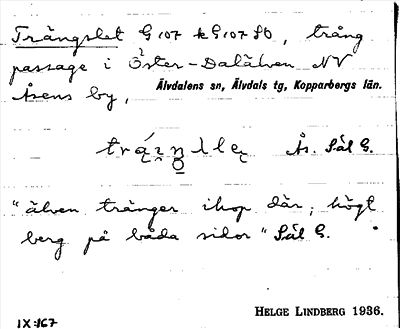 Trängslet G 107 k G 107 80, trång
passage i Öster-Dalälven NV
Åsens by, Älvdalens sn, Älvdals tg, Kopparbergs län.
Ås. Sål G.
"älven tränger ihop där, högt
berg på båda sidor" Sål G.
HELGE LINDBERG 1936.
IX:167